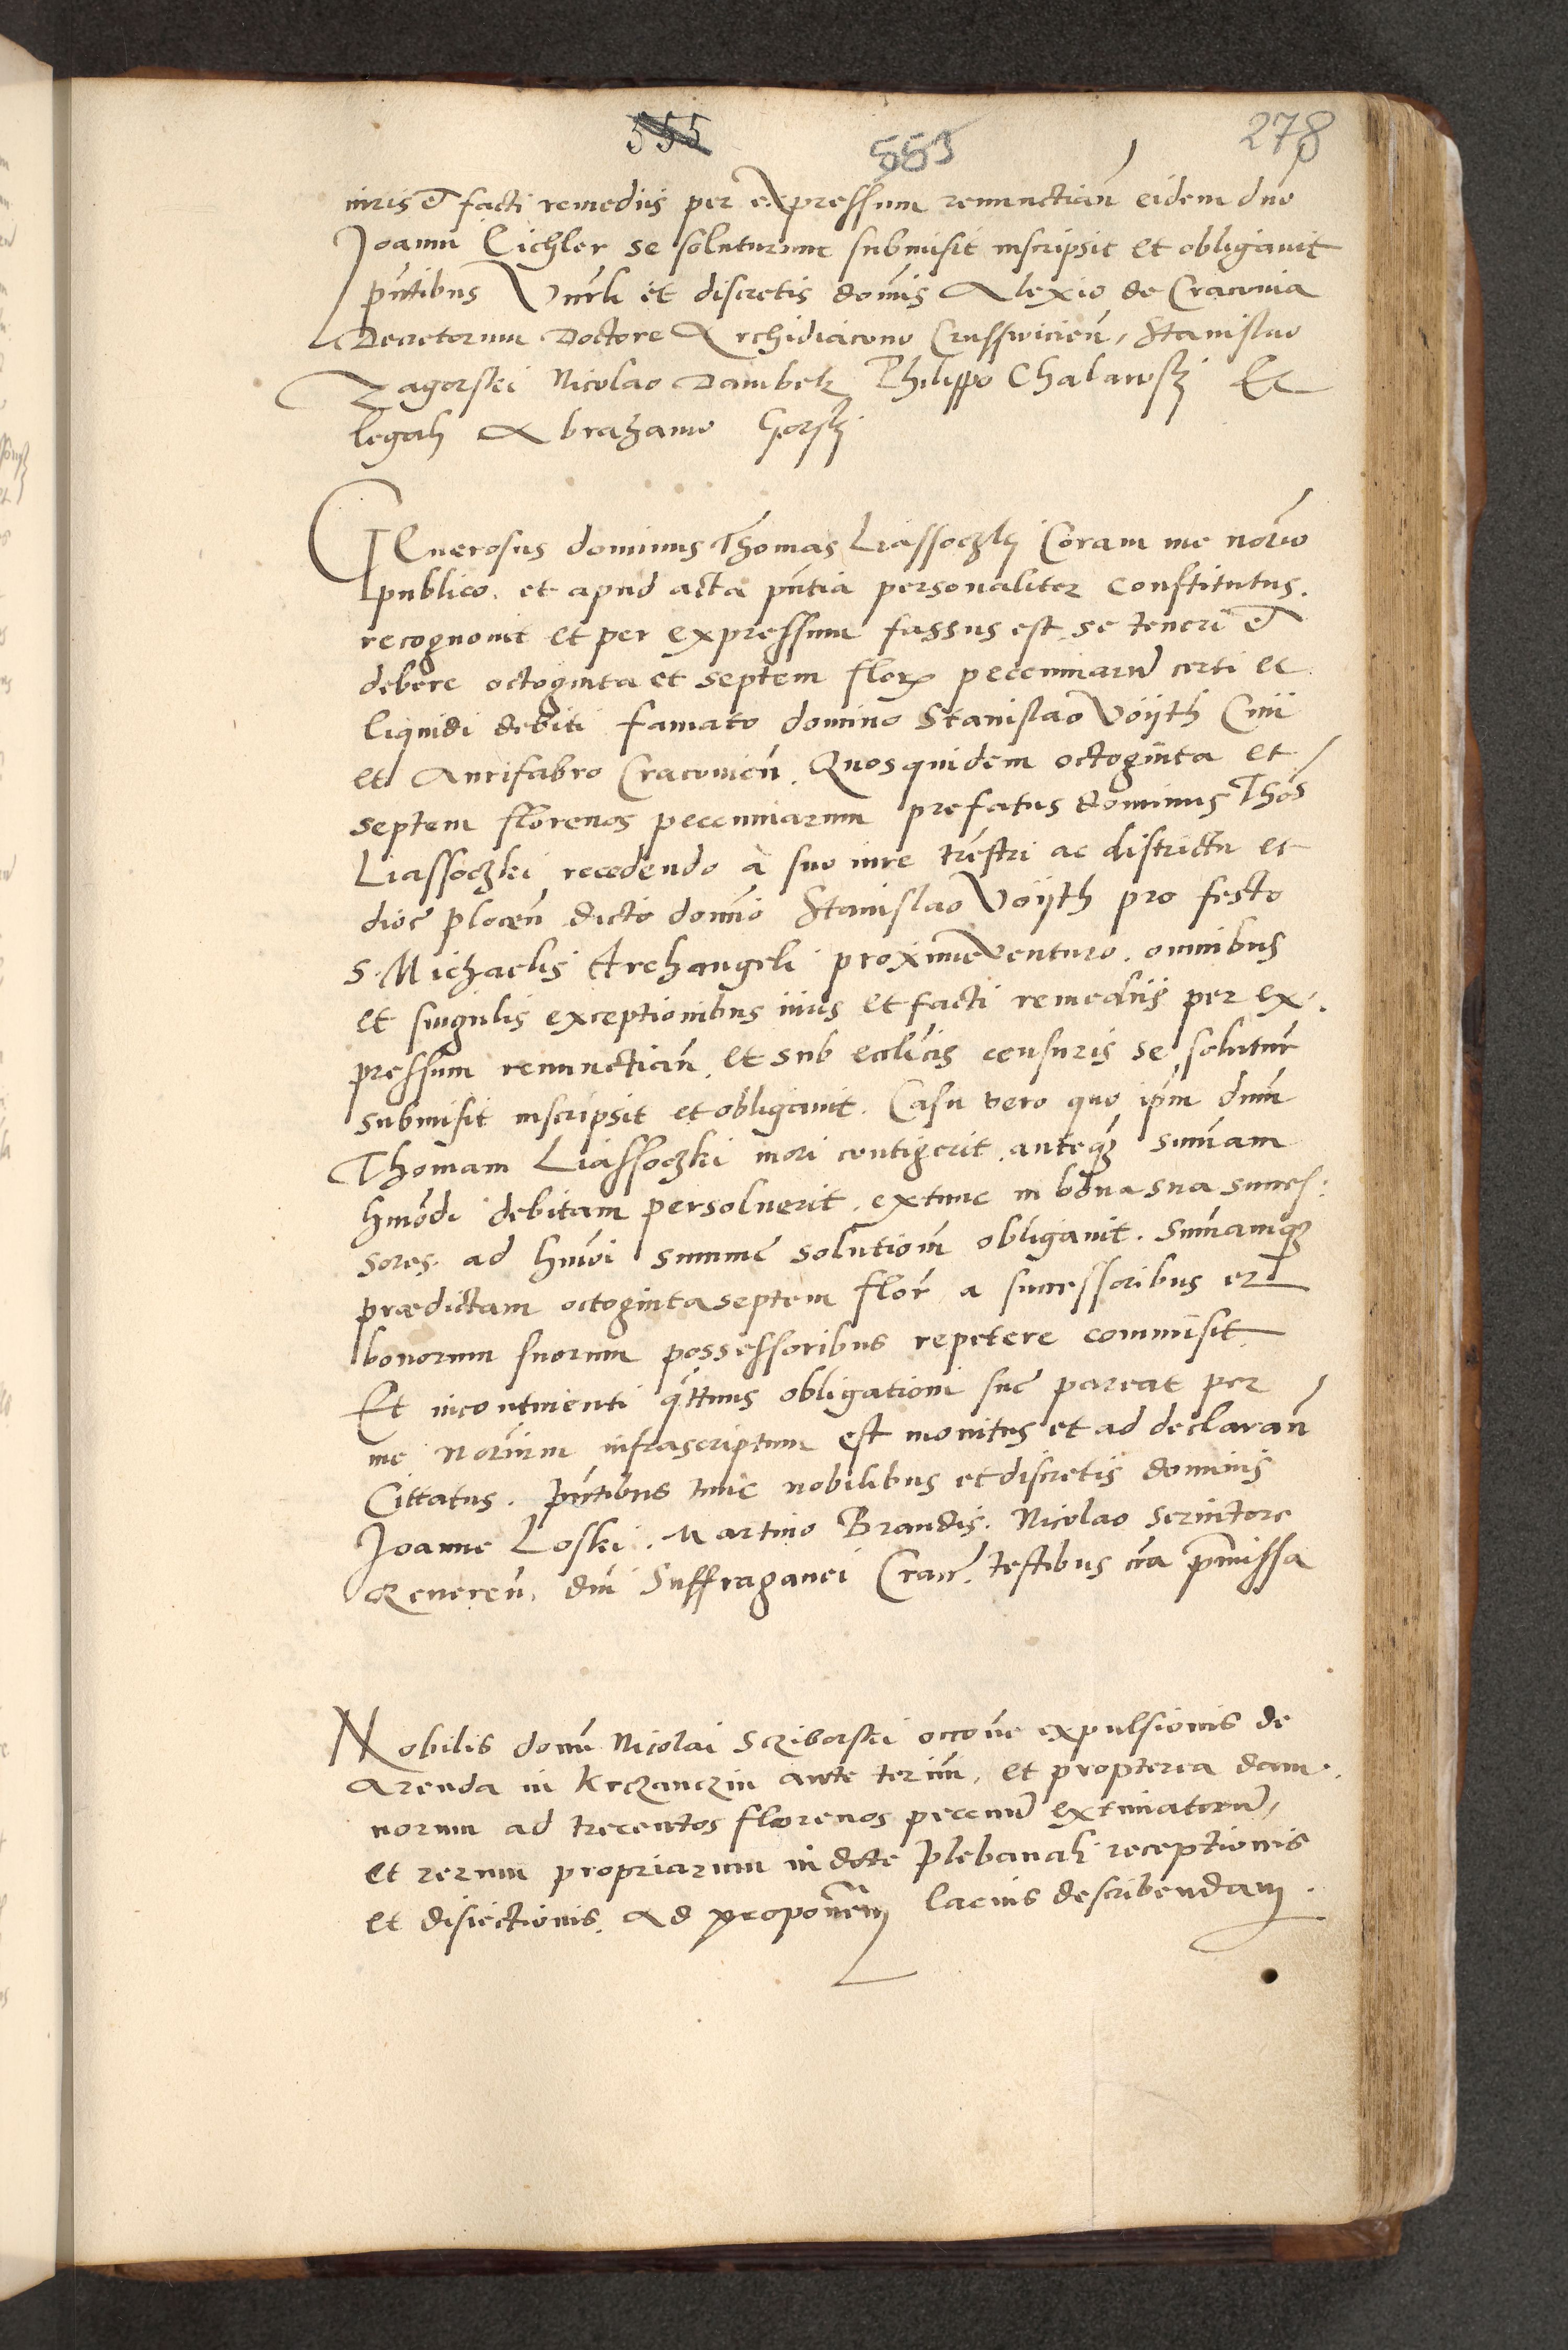 555
553
278
iuris et facti remediis per expressum renunctian̄ eidem dno
Joanni Eichler se soluturum submisit inscripsit et obligauit
pn̄tibus Vn̄rli et discretis dom̄is Alexio de Cracouia
Decretorum Doctore Archidiacono Crusswicien̄, Stanislao
Zagorski Nicolao Dambek Philippo Chalawskj Et
legali Abrahamo Gorskj
GEnerosus dominus Thomas Liassoczkj Coram me not̄rio
publico. et apud acta pn̄tia personaliter constitutus.
recognouit et per expressum fassus est se teneri et
debere octoginta et septem flor̄ pecuniarum certi et
liquidi debiti famato domino Stanislao Voÿth Ciui
et Aurifabro Cracouien̄. Quosquidem octoginta et
septem florenos pecuniarum prefatus dominus Tho͞s
Liassoczki recedendo à suo iure tr̄estri ac districtu et
dioc̄ plocen̄ dicto domīo Stanislao Voÿth pro festo
S. Michaelis Archangeli proximeventuro. omnibus
et singulis exceptionibus iuris et facti remediis per ex-
pressum renunctian̄. et sub eccl̄icis censuris se solutur̄
submisit inscripsit et obligauit. Casu vero quo ip̄m dn̄m
Thomam Liassoczki mori contigerit anteq̄ sum̄am
hm̄odi debitam persoluerit. extunc in bona sua succes:
sores. ad hm̄oi summe solution̄ obligauit. Sum̄amq̄
prædictam octogintaseptem flor̄ a successoribus et
bonorum suorum possessoribus repetere commisit.
Et incontinenti q̄ttnus obligationi sue pareat per
me not̄rium infrascriptum est monitus et ad declaran̄
Cittatus. Pn̄tibus tunc nobilibus et discretis dominis
Joanne Loski. Martino Brandis. Nicolao seruitore
Reueren̄. dn̄i Suffraganei Crac̄. testibus cr̄a pr̄missa
Nobilis dom̄ Nicolai Scziborski occ̄one expulsionis de
Arenda in Krczanczin ante term̄. et propterea dam-
norum ad trecentos florenos pecun̄ extimatorum,
et rerum propriarum in dote Plebanali receptionis
et disiectionis. Ad propon̄em lacius describendam.